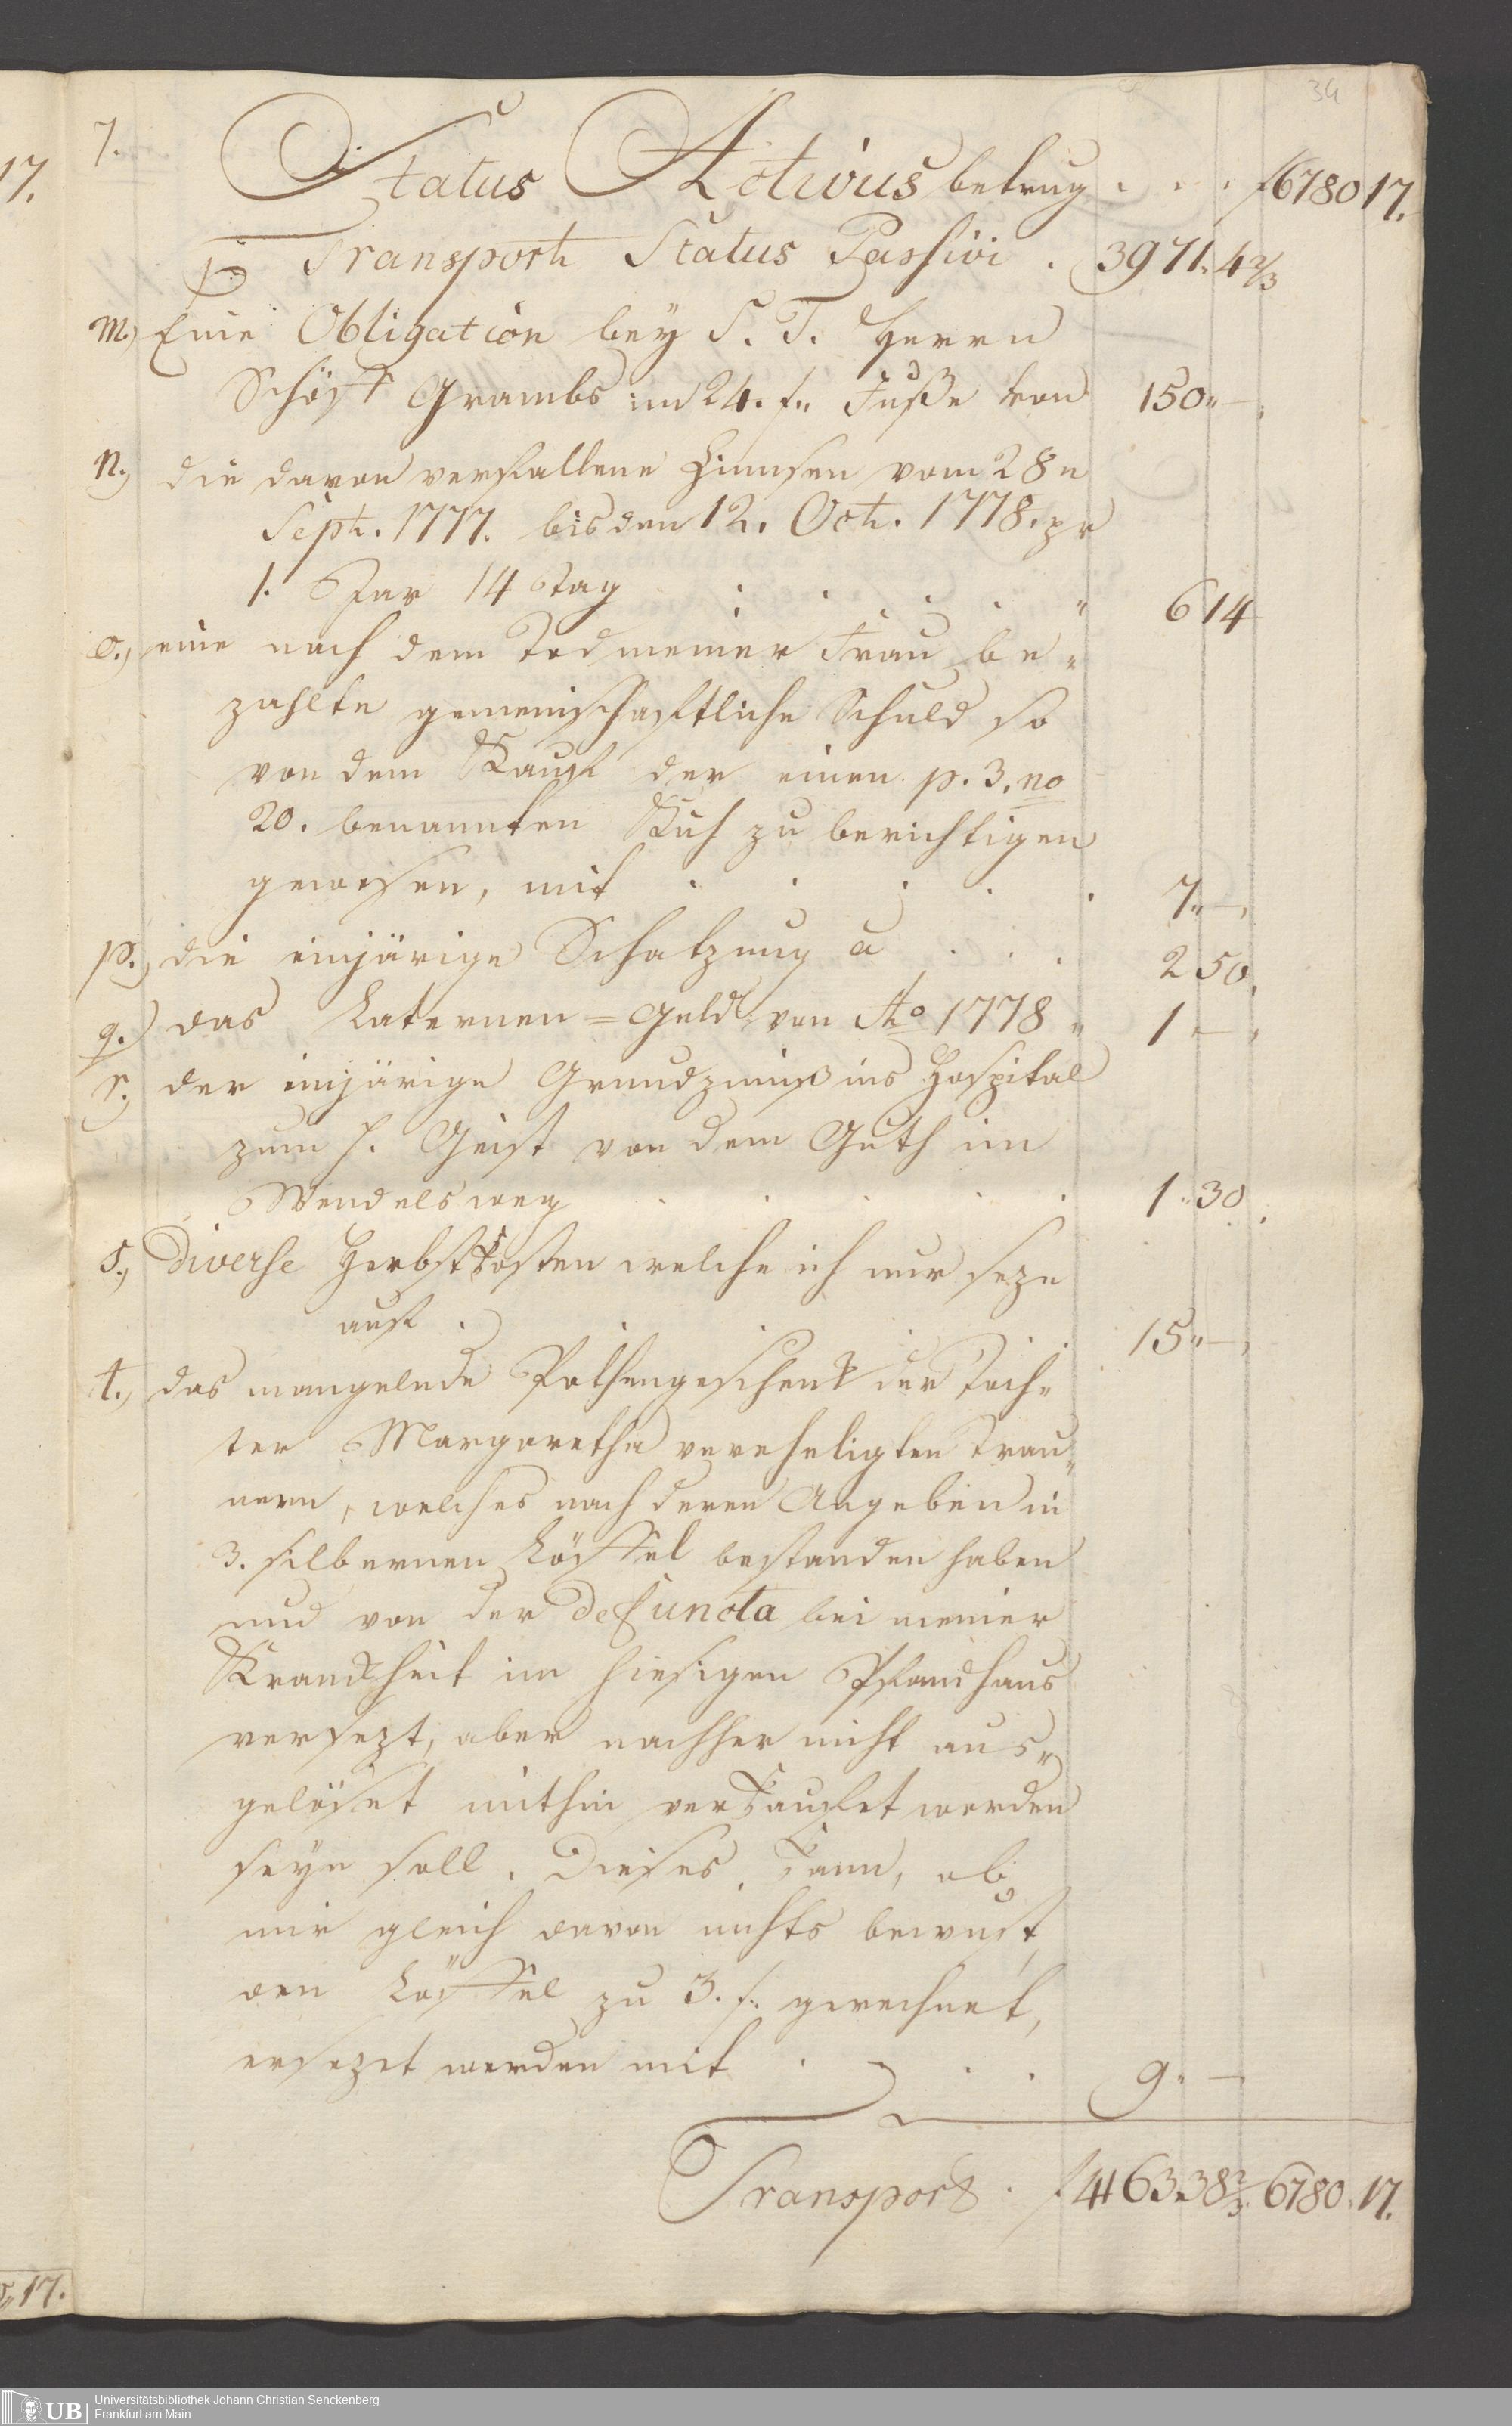 34
17.
7.
Status Activus betrug . . . f 6780 17.
Transport Status Passivi . 3971. 4 2/3
m.) Eine Obligation bey S. T. Herrn
Schöff Grambs im 24. f. Fuße von 150.. —.
n.) die davon verfallene Zinnsen vom 28n
Sept. 1777. bis den 12. Oct. 1778. pr
1. Jar 14 Tag . . . . . " 6 14
o.) eine nach dem Tod meiner Frau be=
zahlte gemeinschafftliche Schuld so
von dem Kauff der einen p. 3. no
20. benannten Kuh zu berichtigen
gewesen, mit . . . . . 7.. —.
p.) die einjärige Schatzung a . . . 2 50.
q.) das Laternen=Geld von Ao 1778 " 1 — .
r.) der einjärige Grundzinß ins Hospital
zum h. Geist von dem Guth im
Wendelsweg . . . . . 1.. 30.
s.) Diverse Herbstkosten welche ich nur seze
auf . . . . . 15.. —.
t.) das mangelnde Pothengeschenk der Toch=
ter Margaretha verehligten Trau=
nern, welches nach deren Angeben in
3. silbernen Löffel bestanden haben
und von der Defuncta bei meiner
Krankheit im hiesigen Pfandhaus
versezt, aber nachher nicht aus=
gelöset mithin verkaufet worden
seyn soll. Dieses kann, ob
mir gleich davon nichts bewust,
den Löffel zu 3. f. gerechnet,
ersezet werden mit . . . 9.. —
Transport . f 4163. 38 2/3. 6780. 17.
17.
UB
Universitätsbibliothek Johann Christian Senckenberg
Frankfurt am Main